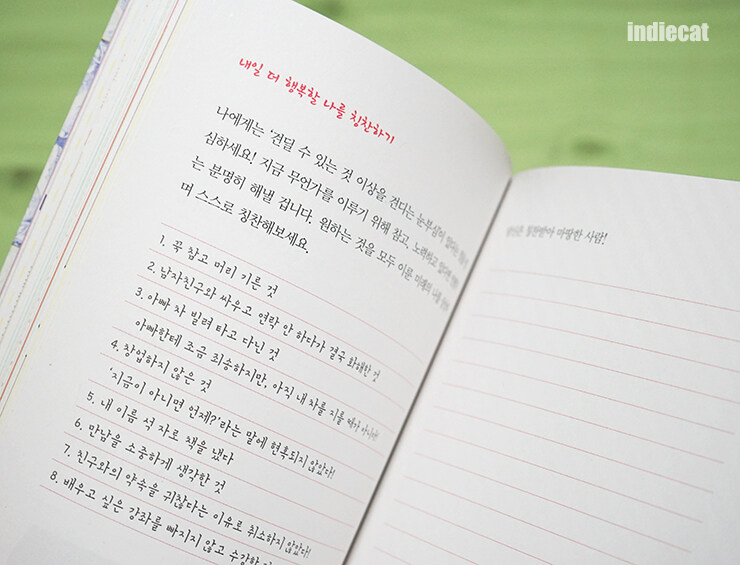 indiecat
내일 더 행복할 나를 칭찬하기
나에게는 '견딜 수 있는 것 이상을 견디는 눈부심이 있다는
심하세요! 지금 무언가를 이루기 위해 참고, 노력하고 있다면
는 분명히 해낼 겁니다. 원하는 것을 모두 이룬 미래의 나를
며 스스로 칭찬해보세요.
1. 꼭 참고 머리 기른 것
2. 남자친구와 싸우고 연락 안 하다가 결국 화해한 것
3. 아빠 차 빌려 타고 다닌 것
아빠한테 조금 죄송하지만, 아직 내 차를 지를 때가 아니다!
4. 창업하지 않은 것
'지금이 아니면 언제?'라는 말에 현혹되지 않았다!
5. 내 이름 석 자로 책을 냈다
6. 만남을 소중하게 생각한 것
7. 친구와의 약속을 귀찮다는 이유로 취소하지 않았다!
8. 배우고 싶은 강좌를 빠지지 않고 수강한
당신은 칭찬받아 마땅한 사람!